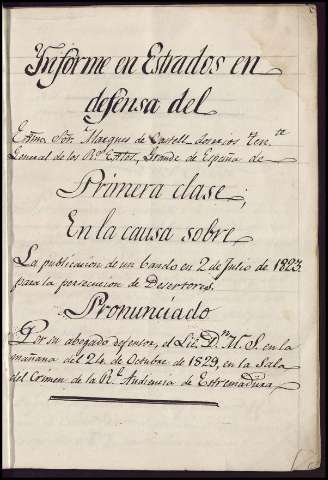 Informe en Estrados en
defensa del
Exmo. Sor. Marques de Castell-dosrios Ten.te
General de los Rs. Extos, Grande de España de
Primera clase,
En la causa sobre
La publicacion de un bando en 2 de Julio de 1823.
para la persecucion de Desertores.
Pronunciado
Por su abogado defensor, el Lic. Dn. M. S. en la
mañana del 24 de Octubre de 1829, en la Sala
del Crimen de la Rl. Audiencia de Estremadura,